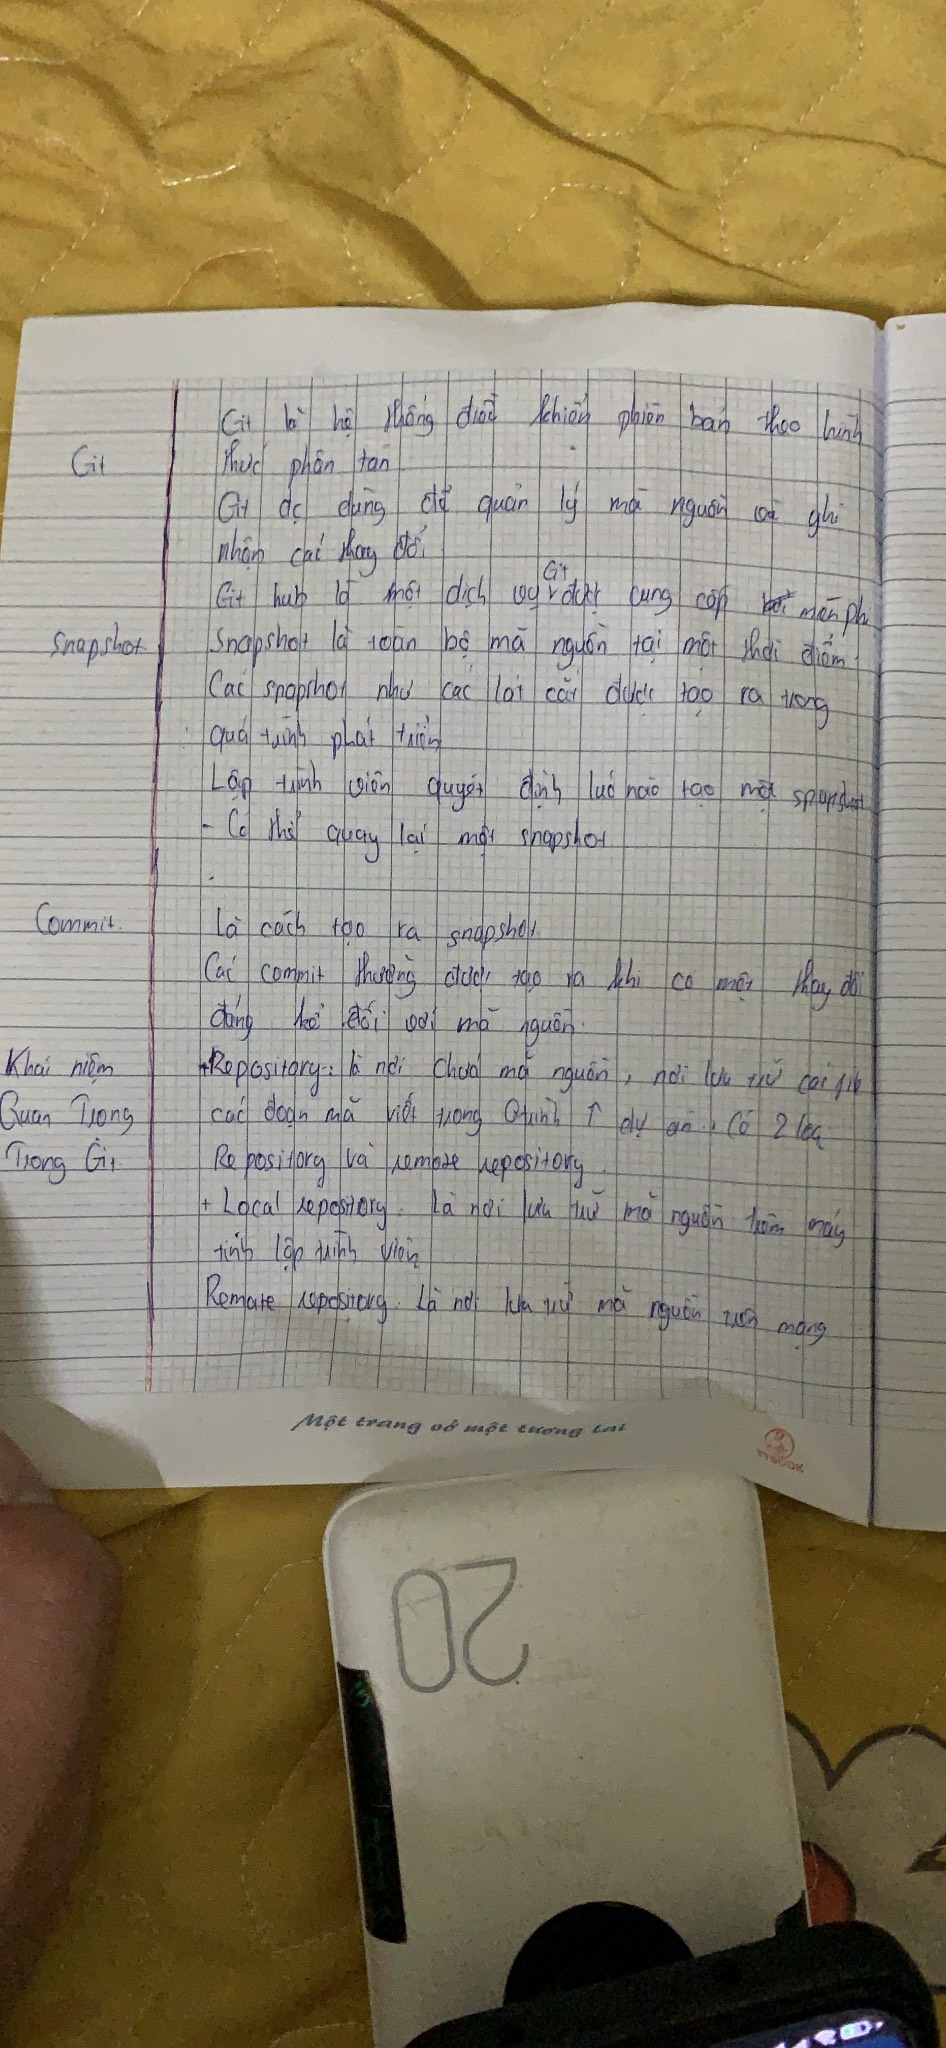 Git là hệ thống điều khiển phiên bản theo hình
Git
thức phân tán
Git đc dùng để quản lý mã nguồn và ghi
nhận các thay đổi
Git
Git hub là một dịch vụ được cung cấp miễn phí
Snapshot
Snapshot là toàn bộ mã nguồn tại một thời điểm
Các spapshot như các lát cắt được tạo ra trong
quá trình phát triển
Lập trình viên quyết định lúc nào tạo một spapshot
- Có thể quay lại một snapshot
Commit.
Là cách tạo ra snapshot
Các commit thường được tạo ra khi có một thay đổi
đáng kể đối với mã nguồn.
Khái niệm
+Repository: là nơi chứa mã nguồn, nơi lưu trữ các file
Quan Trọng
các đoạn mã viết trong Qtrình ↑ dự án. Có 2 loại
Trong Git
Repository và remote repository.
+ Local repository. Là nơi lưu trữ mã nguồn trên máy
tính lập trình viên
Remote repository. Là nơi lưu trữ mã nguồn trên mạng
Một trang vở một tương lai
TTBOOK
20